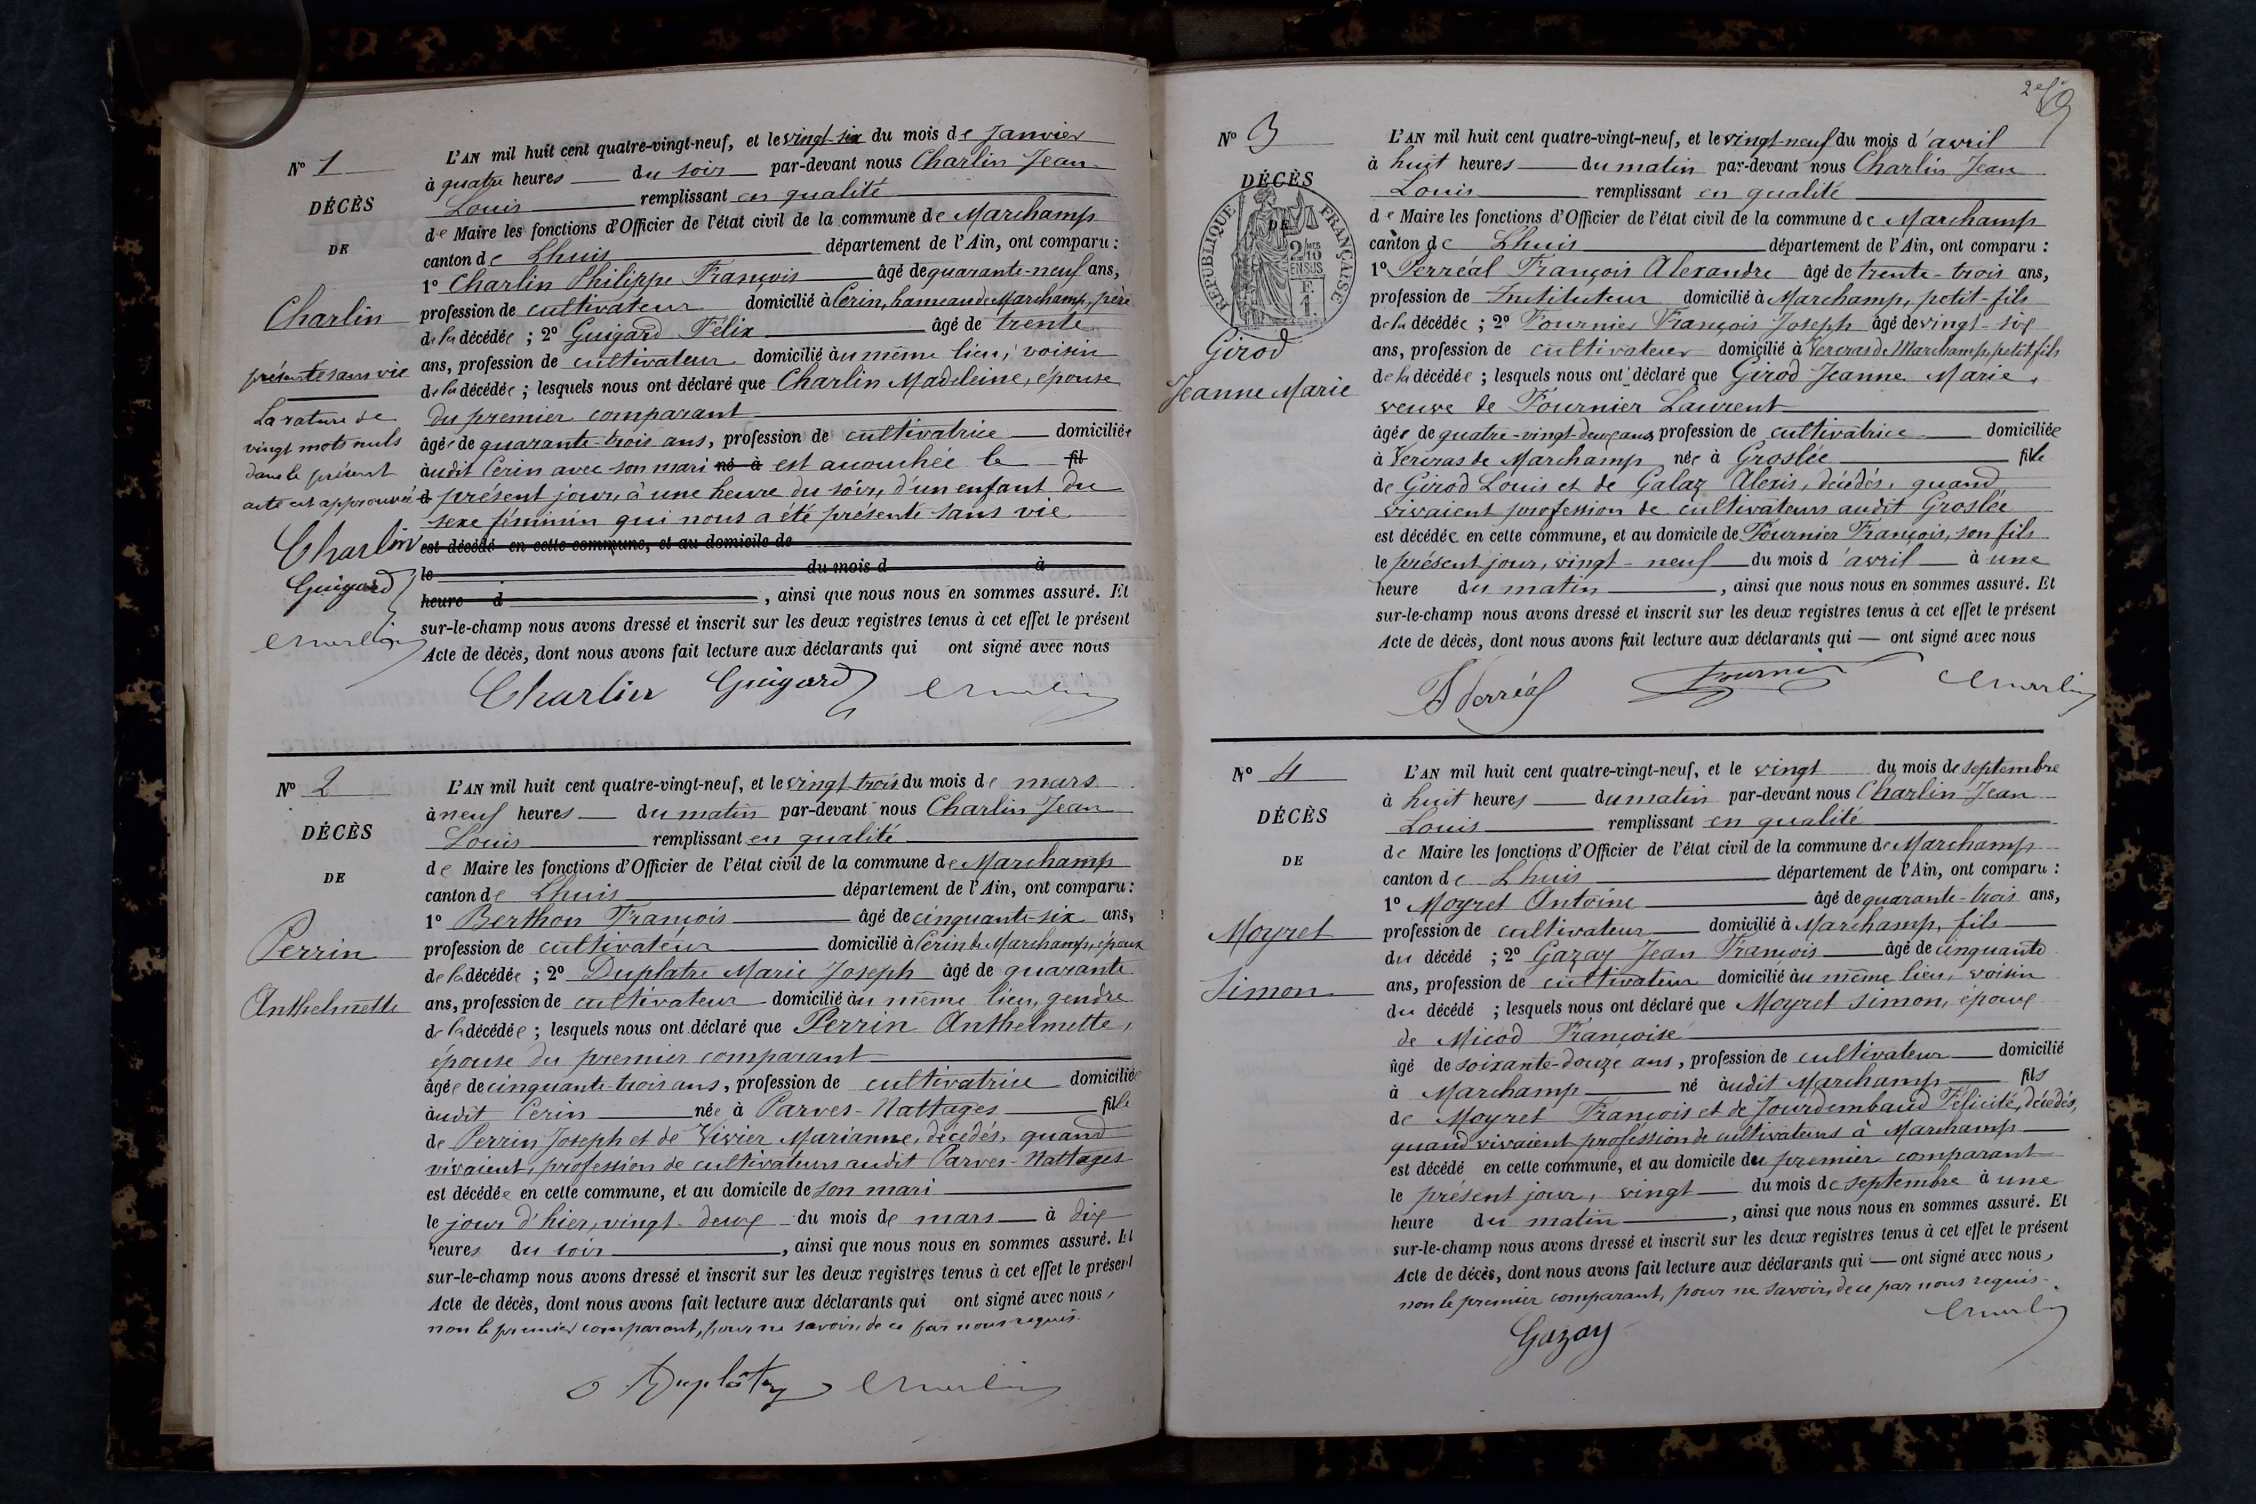 N° 1
DÉCÈS
DE
Charlin
présenté sans vie
La rature de
vingt mots nuls
dans le présent
acte est approuvée
Charlin
Guigard
Charlin
L'AN mil huit cent quatre-vingt-neuf, et le vingt-six du mois de Janvier
à quatre heures du soir par-devant nous Charlin Jean
Louis remplissant en qualité
de Maire les fonctions d'Officier de l'état civil de la commune de Marchamp
canton de Lhuis département de l'Ain, ont comparu :
1° Charlin Philippe François âgé de quarante-neuf ans,
profession de cultivateur domicilié à Cerin, hameau de Marchamp, père
de la décédée ; 2° Guigard Félix âgé de trente
ans, profession de cultivateur domicilié au même lieu, voisin
de la décédée ; lesquels nous ont déclaré que Charlin Madeleine, épouse
du premier comparant
âgée de quarante-trois ans, profession de cultivatrice domiciliée
audit Cerin avec son mari né à est accouchée le fil
d présent jour, à une heure du soir, d'un enfant du
sexe féminin qui nous a été présenté sans vie
est décédé en cette commune, et au domicile de
le du mois d à
heure d , ainsi que nous nous en sommes assuré. Et
sur-le-champ nous avons dressé et inscrit sur les deux registres tenus à cet effet le présent
Acte de décès, dont nous avons fait lecture aux déclarants qui ont signé avec nous
Charlin Guigard Charlin
N° 2
DÉCÈS
DE
Perrin
Anthelmette
L'AN mil huit cent quatre-vingt-neuf, et le vingt-trois du mois de mars
à neuf heures du matin par-devant nous Charlin Jean
Louis remplissant en qualité
de Maire les fonctions d'Officier de l'état civil de la commune de Marchamp
canton de Lhuis département de l'Ain, ont comparu :
1° Berthon François âgé de cinquante-six ans,
profession de cultivateur domicilié à Cerin de Marchamp, époux
de la décédée ; 2° Duplatre Marie Joseph âgé de quarante
ans, profession de cultivateur domicilié au même lieu, gendre
de la décédée ; lesquels nous ont déclaré que Perrin Anthelmette,
épouse du premier comparant
âgée de cinquante-trois ans, profession de cultivatrice domiciliée
audit Cerin née à Parves-Nattages fille
de Perrin Joseph et de Vivier Marianne, décédés, quand
vivaient, profession de cultivateurs audit Parves-Nattages
est décédée en cette commune, et au domicile de son mari
le jour d'hier, vingt-deux du mois de mars à dix
heures du soir , ainsi que nous nous en sommes assuré. Et
sur-le-champ nous avons dressé et inscrit sur les deux registres tenus à cet effet le présent
Acte de décès, dont nous avons fait lecture aux déclarants qui ont signé avec nous,
non le premier comparant, pour ne savoir, de ce par nous requis.
Duplâtre Charlin
N° 3
DÉCÈS
DE
RÉPUBLIQUE FRANÇAISE
2/10 EN SUS
F. 1.
Girod
Jeanne Marie
L'AN mil huit cent quatre-vingt-neuf, et le vingt-neuf du mois d'avril
à huit heures du matin par-devant nous Charlin Jean
Louis remplissant en qualité
de Maire les fonctions d'Officier de l'état civil de la commune de Marchamp
canton de Lhuis département de l'Ain, ont comparu :
1° Perréal François Alexandre âgé de trente-trois ans,
profession de Instituteur domicilié à Marchamp, petit-fils
de la décédée ; 2° Fournier François Joseph âgé de vingt-six
ans, profession de cultivateur domicilié à Vercras de Marchamp, petit-fils
de la décédée ; lesquels nous ont déclaré que Girod Jeanne Marie,
veuve de Fournier Laurent
âgée de quatre-vingt-deux ans, profession de cultivatrice domiciliée
à Vercras de Marchamp née à Groslée fille
de Girod Louis et de Galaz Alexis, décédés, quand
vivaient profession de cultivateurs audit Groslée
est décédée en cette commune, et au domicile de Fournier François, son fils
le présent jour, vingt-neuf du mois d'avril à une
heure du matin , ainsi que nous nous en sommes assuré. Et
sur-le-champ nous avons dressé et inscrit sur les deux registres tenus à cet effet le présent
Acte de décès, dont nous avons fait lecture aux déclarants qui — ont signé avec nous
Perréal Fournier Charlin
N° 4
DÉCÈS
DE
Moyret
Simon
L'AN mil huit cent quatre-vingt-neuf, et le vingt du mois de septembre
à huit heures du matin par-devant nous Charlin Jean
Louis remplissant en qualité
de Maire les fonctions d'Officier de l'état civil de la commune de Marchamp
canton de Lhuis département de l'Ain, ont comparu :
1° Moyret Antoine âgé de quarante-trois ans,
profession de cultivateur domicilié à Marchamp, fils
du décédé ; 2° Gazay Jean François âgé de cinquante
ans, profession de cultivateur domicilié au même lieu, voisin
du décédé ; lesquels nous ont déclaré que Moyret Simon, époux
de Micod Françoise
âgé de soixante-douze ans, profession de cultivateur domicilié
à Marchamp né audit Marchamp fils
de Moyret François et de Jourdembaud Félicité, décédés,
quand vivaient profession de cultivateurs à Marchamp
est décédé en cette commune, et au domicile du premier comparant
le présent jour, vingt du mois de septembre à une
heure du matin , ainsi que nous nous en sommes assuré. Et
sur-le-champ nous avons dressé et inscrit sur les deux registres tenus à cet effet le présent
Acte de décès, dont nous avons fait lecture aux déclarants qui — ont signé avec nous,
non le premier comparant, pour ne savoir, de ce par nous requis.
Gazay Charlin